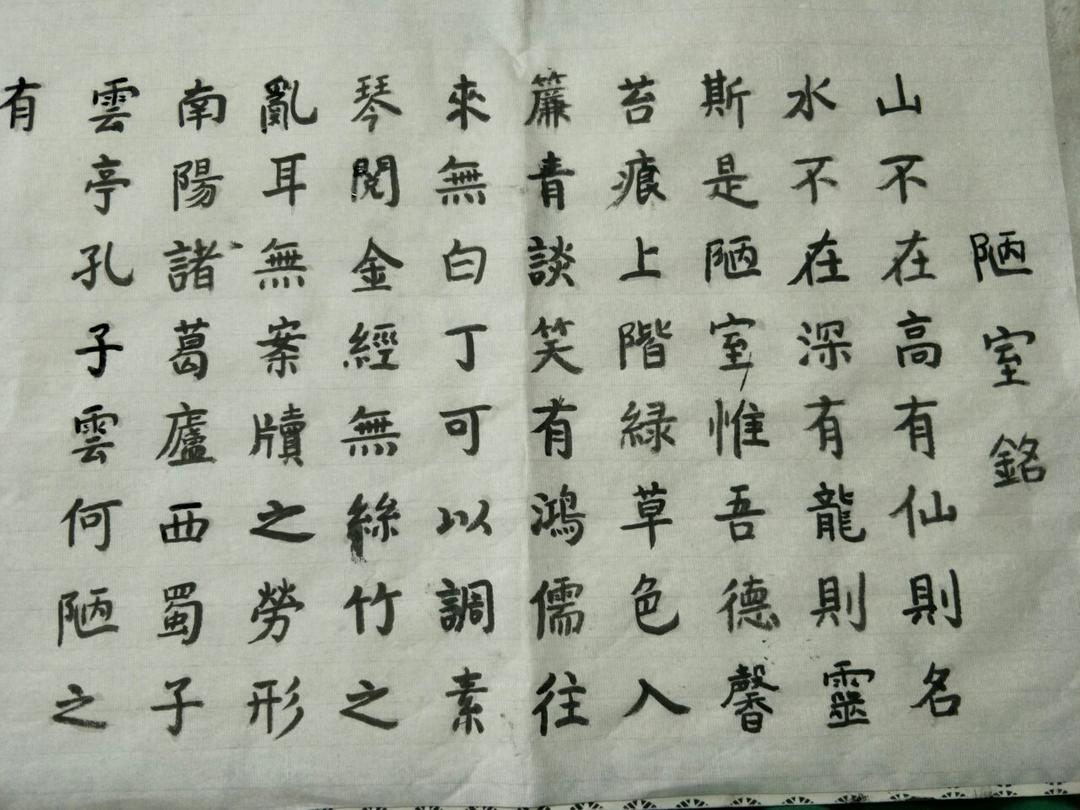 陋室銘
山不在高有仙則名
水不在深有龍則靈
斯是陋室惟吾德馨
苔痕上階緑草色入
簾青談笑有鴻儒往
來無白丁可以調素
琴閱金經無絲竹之
亂耳無案牘之勞形
南陽諸葛廬西蜀子
雲亭孔子雲何陋之
有